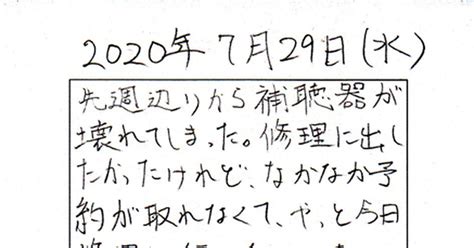 2020年7月29日(水)
先週辺りから補聴器が
壊れてしまった。修理に出し
たかったけれど、なかなか予
約が取れなくて、やっと今日